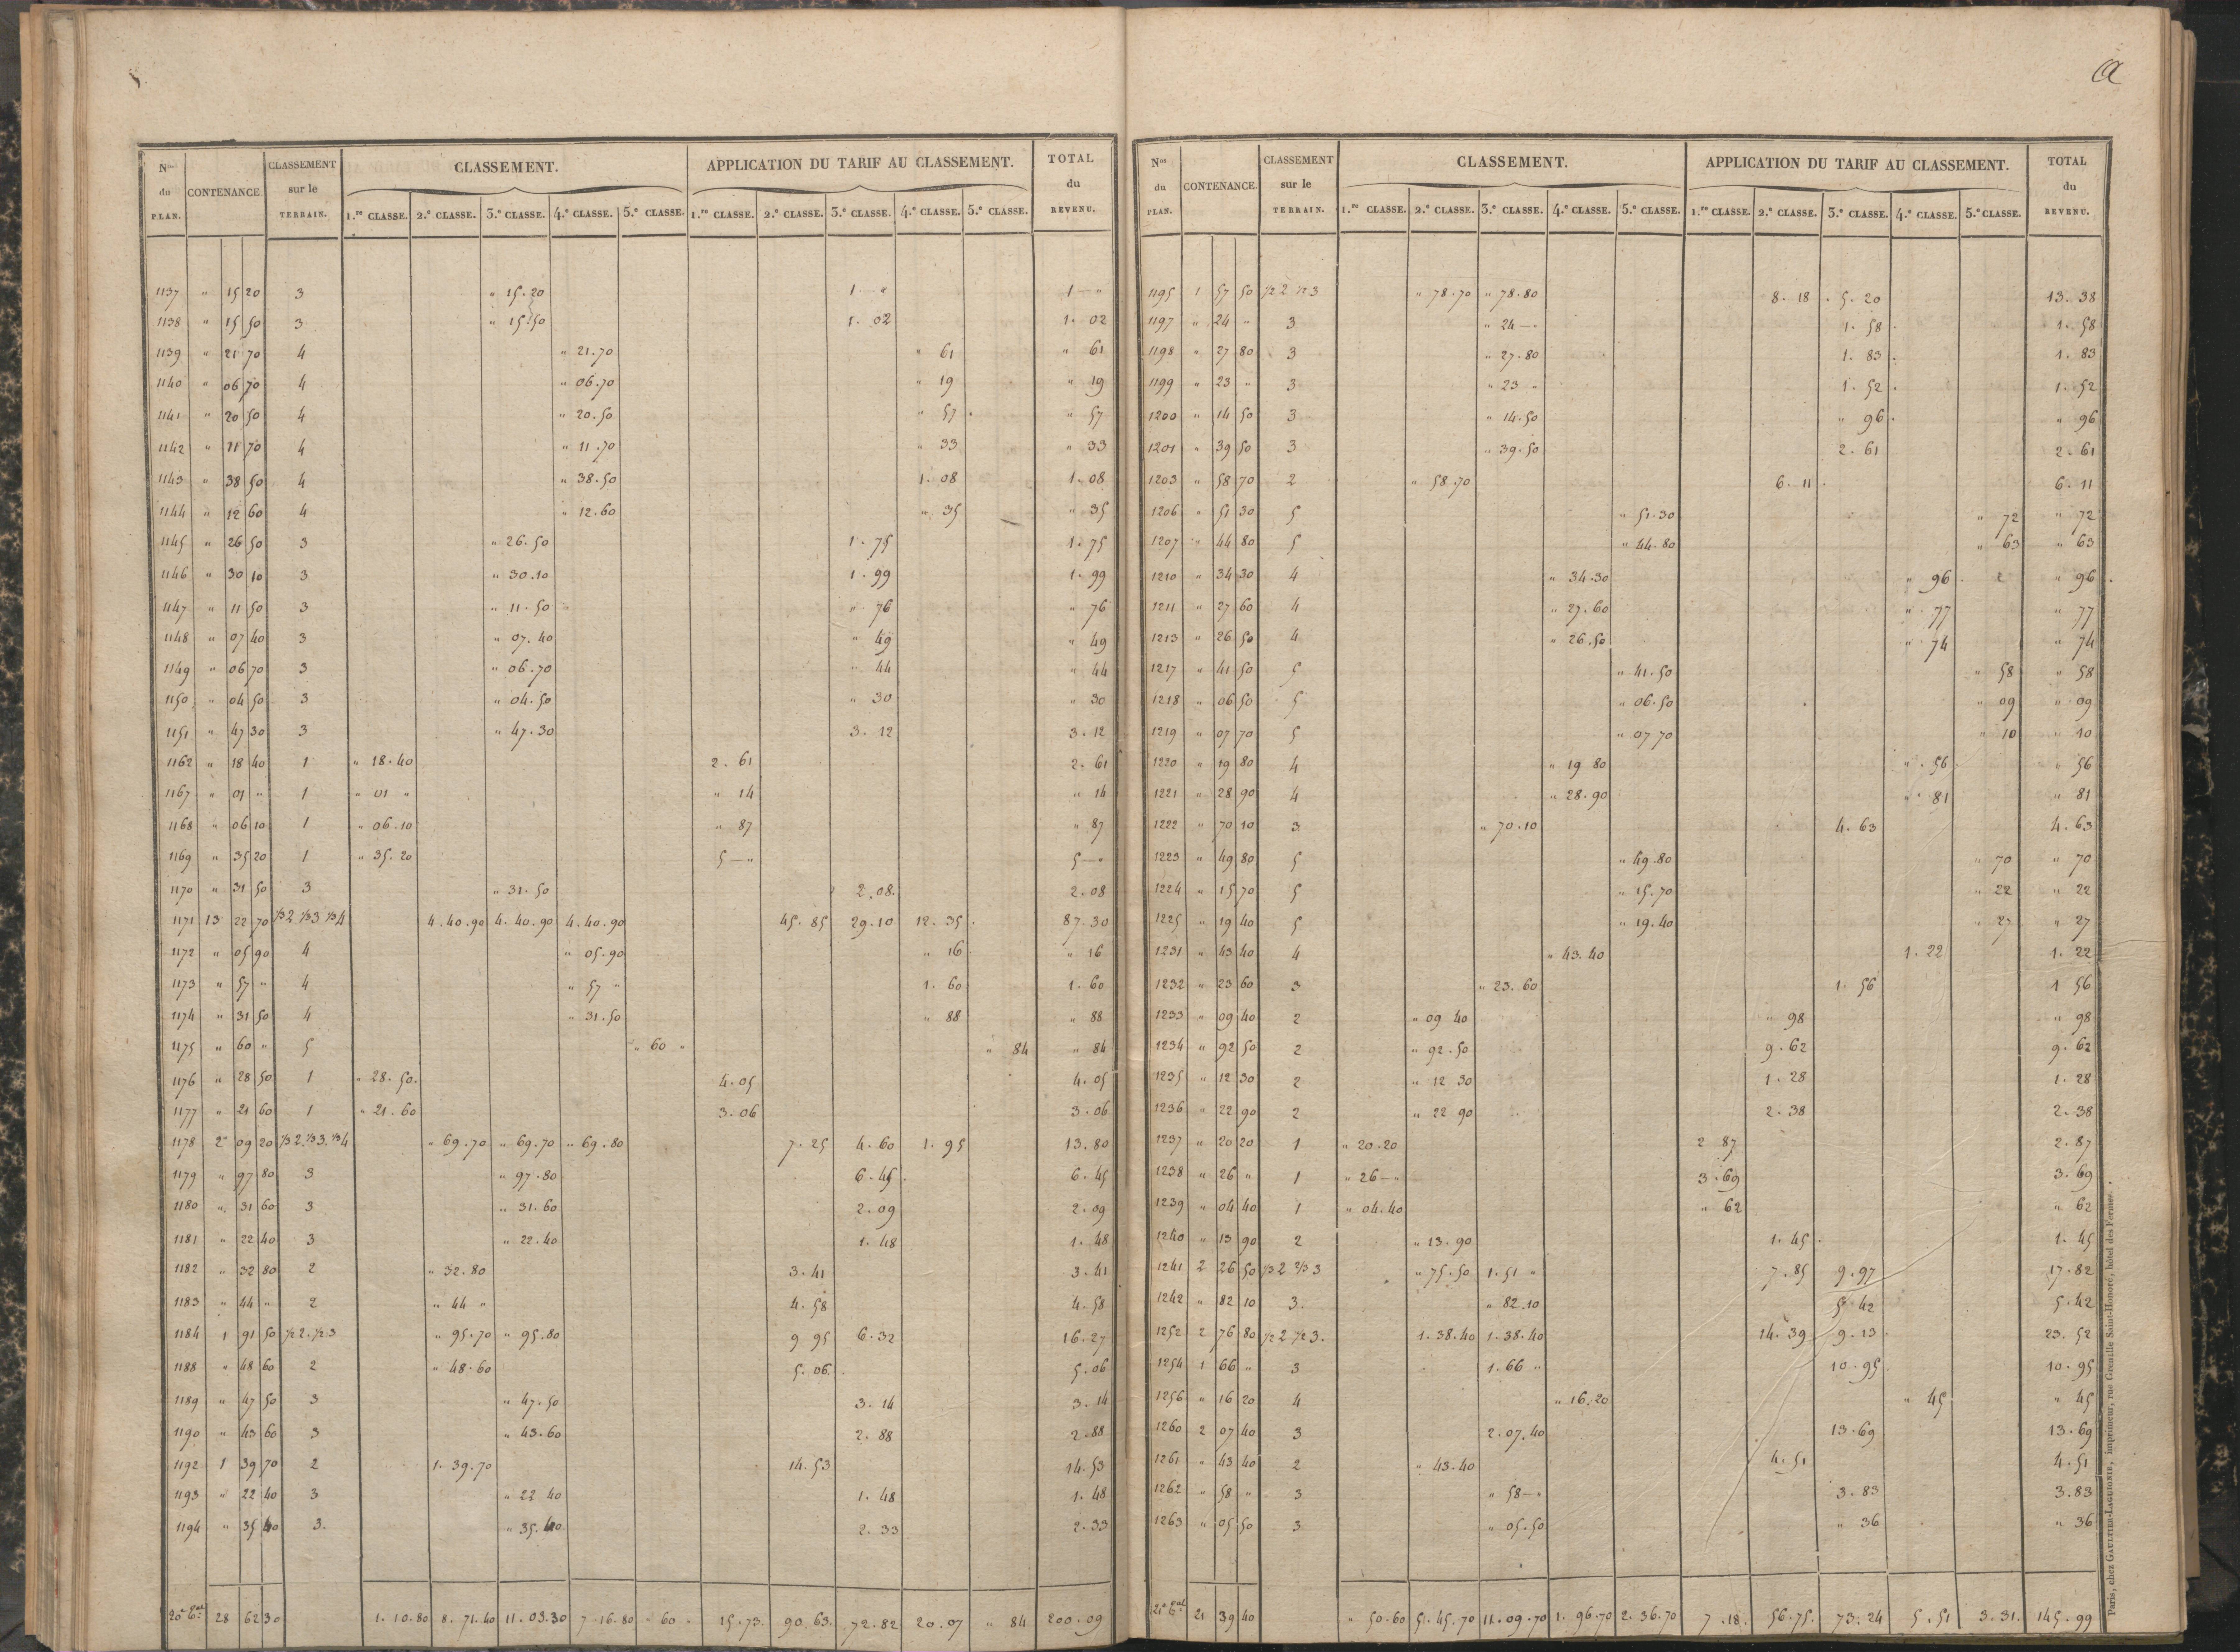 a
Nos du PLAN. CONTENANCE. CLASSEMENT sur le TERRAIN. CLASSEMENT. APPLICATION DU TARIF AU CLASSEMENT. TOTAL du REVENU.
1.re CLASSE. 2.e CLASSE. 3.e CLASSE. 4.e CLASSE. 5.e CLASSE. 1.re CLASSE. 2.e CLASSE. 3.e CLASSE. 4.e CLASSE. 5.e CLASSE.
1137 " 15 20 3 " 15.20 1 — " 1 — "
1138 " 15 50 3 " 15.50 1. 02 1. 02
1139 " 21 70 4 " 21.70 " 61 " 61
1140 " 06 70 4 " 06.70 " 19 " 19
1141 " 20 50 4 " 20.50 " 57 " 57
1142 " 11 70 4 " 11.70 " 33 " 33
1143 " 38 50 4 " 38.50 1. 08 1. 08
1144 " 12 60 4 " 12.60 " 35 " 35
1145 " 26 50 3 " 26.50 1. 75 1. 75
1146 " 30 10 3 " 30.10 1. 99 1. 99
1147 " 11 50 3 " 11.50 " 76 " 76
1148 " 07 40 3 " 07.40 " 49 " 49
1149 " 06 70 3 " 06.70 " 44 " 44
1150 " 04 50 3 " 04.50 " 30 " 30
1151 " 47 30 3 " 47.30 3. 12 3. 12
1162 " 18 40 1 " 18.40 2. 61 2. 61
1167 " 01 " 1 " 01 " " 14 " 14
1168 " 06 10 1 " 06.10 " 87 " 87
1169 " 35 20 1 " 35.20 5 — " 5 — "
1170 " 31 50 3 " 31.50 2.08 2.08
1171 13 22 70 1/3 2 1/3 3 1/3 4 4.40.90 4.40.90 4.40.90 45. 85 29.10 12. 35 87.30
1172 " 05 90 4 " 05.90 " 16 " 16
1173 " 57 " 4 " 57 " 1. 60 1. 60
1174 " 31 50 4 " 31.50 " 88 " 88
1175 " 60 " 5 " 60 " " 84 " 84
1176 " 28 50 1 " 28.50 4.05 4.05
1177 " 21 60 1 " 21.60 3.06 3.06
1178 2 09 20 1/3 2. 1/3 3. 1/3 4 " 69.70 " 69.70 " 69.80 7. 25 4. 60 1. 95 13.80
1179 " 97 80 3 " 97.80 6.45 6.45
1180 " 31 60 3 " 31.60 2.09 2.09
1181 " 22 40 3 " 22.40 1. 48 1. 48
1182 " 32 80 2 " 32.80 3.41 3.41
1183 " 44 " 2 " 44 " 4. 58 4.58
1184 1 91 50 1/2 2. 1/2 3 " 95.70 " 95.80 9 95 6.32 16.27
1188 " 48 60 2 " 48.60 5.06 5.06
1189 " 47 50 3 " 47.50 3. 14 3. 14
1190 " 43 60 3 " 43.60 2. 88 2.88
1192 1 39 70 2 1. 39.70 14.53 14.53
1193 " 22 40 3 " 22 40 1. 48 1. 48
1194 " 35 40 3. " 35.40 2. 33 2.33
20e 28 62 30 1. 10.80 8. 71.40 11.03.30 7.16.80 " 60 " 15.73 90.63 72.82 20.07 " 84 200.09
Nos du PLAN. CONTENANCE. CLASSEMENT sur le TERRAIN. CLASSEMENT. APPLICATION DU TARIF AU CLASSEMENT. TOTAL du REVENU.
1.re CLASSE. 2.e CLASSE. 3.e CLASSE. 4.e CLASSE. 5.e CLASSE. 1.re CLASSE. 2.e CLASSE. 3.e CLASSE. 4.e CLASSE. 5.e CLASSE.
1195 1 57 50 1/2 2 1/2 3 " 78.70 " 78.80 8. 18 5. 20 13. 38
1197 " 24 " 3 " 24 — " 1. 58 1. 58
1198 " 27 80 3 " 27.80 1. 83 1. 83
1199 " 23 " 3 " 23 " 1. 52 1. 52
1200 " 14 50 3 " 14.50 " 96 " 96
1201 " 39 50 3 " 39.50 2. 61 2. 61
1203 " 58 70 2 " 58.70 6. 11 6. 11
1206 " 51 30 5 " 51.30 " 72 " 72
1207 " 44 80 5 " 44.80 " 63 " 63
1210 " 34 30 4 " 34.30 " 96 " 96
1211 " 27 60 4 " 27.60 " 77 " 77
1213 " 26 50 4 " 26.50 " 74 " 74
1217 " 41 50 5 " 41.50 " 58 " 58
1218 " 06 50 5 " 06.50 " 09 " 09
1219 " 07 70 5 " 07 70 " 10 " 10
1220 " 19 80 4 " 19 80 " 56 " 56
1221 " 28 90 4 " 28.90 " 81 " 81
1222 " 70 10 3 " 70.10 4. 63 4. 63
1223 " 49 80 5 " 49.80 " 70 " 70
1224 " 15 70 5 " 15.70 " 22 " 22
1225 " 19 40 5 " 19.40 " 27 " 27
1231 " 43 40 4 " 43.40 1. 22 1. 22
1232 " 23 60 3 " 23.60 1. 56 1 56
1233 " 09 40 2 " 09 40 " 98 " 98
1234 " 92 50 2 " 92.50 9.62 9. 62
1235 " 12 30 2 " 12 30 1. 28 1. 28
1236 " 22 90 2 " 22 90 2. 38 2.38
1237 " 20 20 1 " 20.20 2 87 2. 87
1238 " 26 " 1 " 26 — " 3.69 3. 69
1239 " 04 40 1 " 04.40 " 62 " 62
1240 " 13 90 2 " 13.90 1. 45 1. 45
1241 2 26 50 1/3 2 2/3 3 " 75.50 1.51 " 7.85 9.97 17.82
1242 " 82 10 3. " 82.10 5 42 5.42
1252 2 76 80 1/2 2 1/2 3. 1.38.40 1.38.40 14. 39 9.13 23. 52
1254 1 66 " 3 1.66 " 10.95 10.95
1256 " 16 20 4 " 16.20 " 45 " 45
1260 2 07 40 3 2.07.40 13.69 13.69
1261 " 43 40 2 " 43.40 4. 51 4.51
1262 " 58 " 3 " 58 — " 3. 83 3.83
1263 " 05 50 3 " 05.50 " 36 " 36
21e 21 39 40 " 50.60 51.45.70 11.09.70 1. 96.70 2. 36.70 7.18. 56.75. 73.24 5.51 3.31. 145.99
Paris, chez GAULTIER-LAGUIONIE, imprimeur, rue Grenelle Saint-Honoré, hôtel des Fermes.